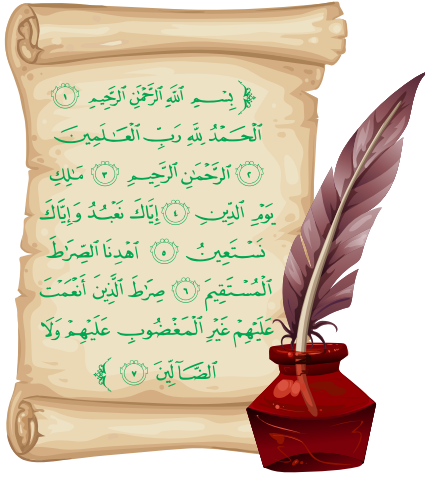 ﴿بِسْمِ ٱللَّهِ ٱلرَّحْمَٰنِ ٱلرَّحِيمِ ١
ٱلْحَمْدُ لِلَّهِ رَبِّ ٱلْعَٰلَمِينَ
٢ ٱلرَّحْمَٰنِ ٱلرَّحِيمِ ٣ مَٰلِكِ
يَوْمِ ٱلدِّينِ ٤ إِيَّاكَ نَعْبُدُ وَإِيَّاكَ
نَسْتَعِينُ ٥ ٱهْدِنَا ٱلصِّرَٰطَ
ٱلْمُسْتَقِيمَ ٦ صِرَٰطَ ٱلَّذِينَ أَنْعَمْتَ
عَلَيْهِمْ غَيْرِ ٱلْمَغْضُوبِ عَلَيْهِمْ وَلَا
ٱلضَّآلِّينَ ٧﴾